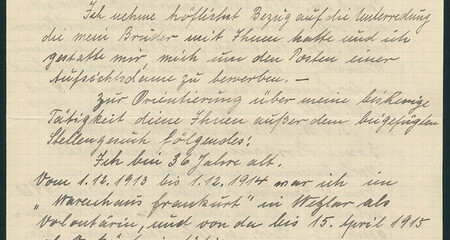 Ich nehme höflichst Bezug auf die Unterredung
die mein Bruder mit Ihnen hatte und ich
gestatte mir, mich um den Posten einer
Aufsichtsdame zu bewerben. —
Zur Orientierung über meine bisherige
Tätigkeit diene Ihnen außer dem beigefügten
Stellengesuch folgendes:
Ich bin 36 Jahre alt.
Vom 1.12.1913 bis 1.12.1914 war ich im
„Warenhaus Frankfurt" in Wetzlar als
Volontärin, und von da bis 15. April 1915